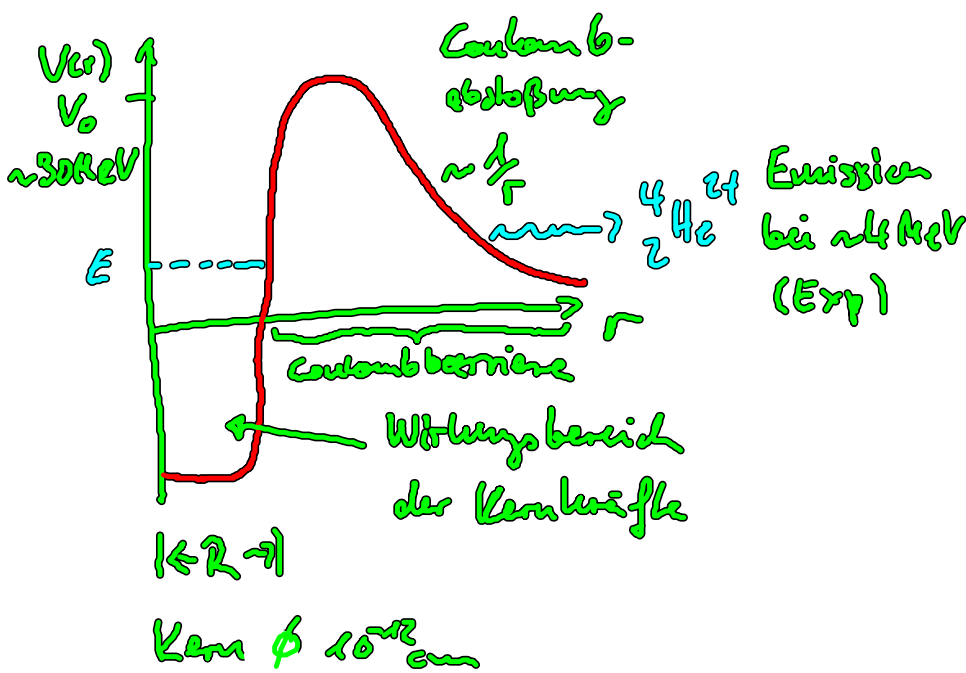 V(r)
V₀
~30MeV
E
Coulomb-
abstoßung
~ 1/r
⁴₂He²⁺
Emission
bei ~4MeV
(Exp)
r
Coulombbarriere
Wirkungsbereich
der Kernkräfte
|← R →|
Kern ϕ 10⁻¹² cm